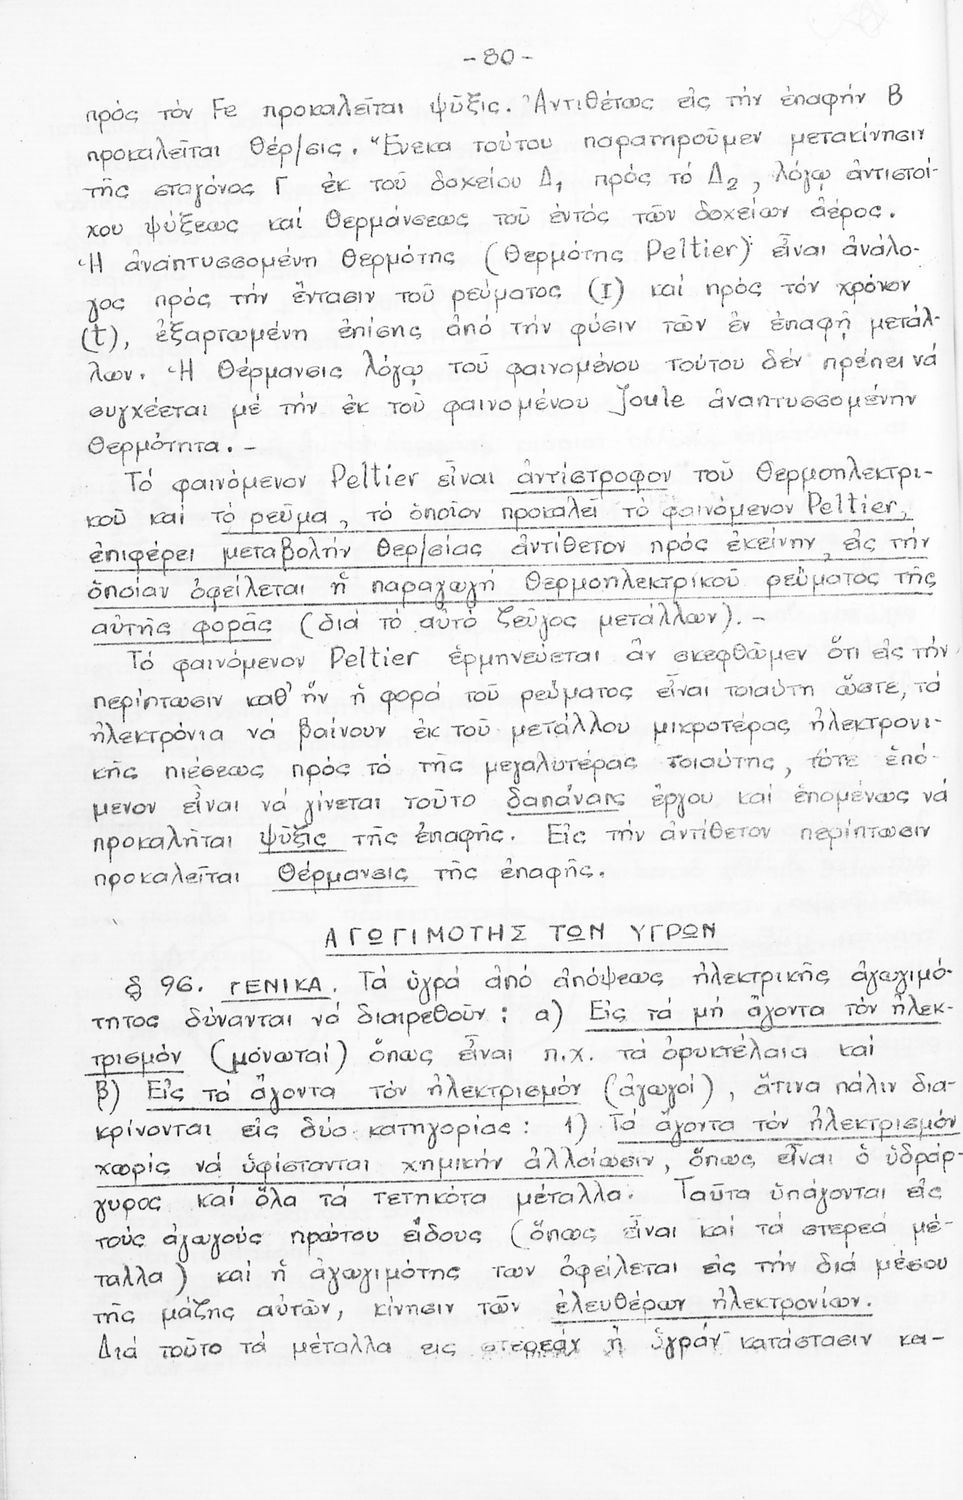 - 80 -
πρός τόν Fe προκαλεῖται ψῦξις. Ἀντιθέτως εἰς τήν ἐπαφήν Β
προκαλεῖται θέρ/σις. Ἕνεκα τούτου παρατηροῦμεν μετακίνησιν
τῆς σταγόνος Γ ἐκ τοῦ δοχείου Δ₁ πρός τό Δ₂, λόγῳ ἀντιστοί-
χου ψύξεως καί θερμάνσεως τοῦ ἐντός τῶν δοχείων ἀέρος.
Ἡ ἀναπτυσσομένη θερμότης (θερμότης Peltier) εἶναι ἀνάλο-
γος πρός τήν ἔντασιν τοῦ ρεύματος (I) καί πρός τόν χρόνον
(t), ἐξαρτωμένη ἐπίσης ἀπό τήν φύσιν τῶν ἐν ἐπαφῇ μετάλ-
λων. Ἡ θέρμανσις λόγῳ τοῦ φαινομένου τούτου δέν πρέπει νά
συγχέεται μέ τήν ἐκ τοῦ φαινομένου Joule ἀναπτυσσομένην
θερμότητα. -
Τό φαινόμενον Peltier εἶναι ἀντίστροφον τοῦ θερμοηλεκτρι-
κοῦ καί τό ρεῦμα, τό ὁποῖον προκαλεῖ τό φαινόμενον Peltier,
ἐπιφέρει μεταβολήν θερ/σίας ἀντίθετον πρός ἐκείνην, εἰς τήν
ὁποίαν ὀφείλεται ἡ παραγωγή θερμοηλεκτρικοῦ ρεύματος τῆς
αὐτῆς φορᾶς (διά τό αὐτό ζεῦγος μετάλλων). -
Τό φαινόμενον Peltier ἑρμηνεύεται ἄν σκεφθῶμεν ὅτι εἰς τήν
περίπτωσιν καθ' ἥν ἡ φορά τοῦ ρεύματος εἶναι τοιαύτη ὥστε, τά
ἠλεκτρόνια νά βαίνουν ἐκ τοῦ μετάλλου μικροτέρας ἠλεκτρονι-
κῆς πιέσεως πρός τό τῆς μεγαλυτέρας τοιαύτης, τότε ἑπό-
μενον εἶναι νά γίνεται τοῦτο δαπάναις ἔργου καί ἑπομένως νά
προκαλῆται ψῦξις τῆς ἐπαφῆς. Εἰς τήν ἀντίθετον περίπτωσιν
προκαλεῖται θέρμανσις τῆς ἐπαφῆς.
ΑΓΩΓΙΜΟΤΗΣ ΤΩΝ ΥΓΡΩΝ
§ 96. ΓΕΝΙΚΑ. Τά ὑγρά ἀπό ἀπόψεως ἠλεκτρικῆς ἀγωγιμό-
τητος δύνανται νά διαιρεθοῦν: α) Εἰς τά μή ἄγοντα τόν ἠλεκ-
τρισμόν (μονωταί) ὅπως εἶναι π.χ. τά ὀρυκτέλαια καί
β) Εἰς τά ἄγοντα τόν ἠλεκτρισμόν (ἀγωγοί), ἅτινα πάλιν δια-
κρίνονται εἰς δύο κατηγορίας: 1) Τά ἄγοντα τόν ἠλεκτρισμόν
χωρίς νά ὑφίστανται χημικήν ἀλλοίωσιν, ὅπως εἶναι ὁ ὑδράρ-
γυρος καί ὅλα τά τετηκότα μέταλλα. Ταῦτα ὑπάγονται εἰς
τούς ἀγωγούς πρώτου εἴδους (ὅπως εἶναι καί τά στερεά μέ-
ταλλα) καί ἡ ἀγωγιμότης των ὀφείλεται εἰς τήν διά μέσου
τῆς μάζης αὐτῶν, κίνησιν τῶν ἐλευθέρων ἠλεκτρονίων.
Διά τοῦτο τά μέταλλα εἰς στερεάν ἤ ὑγράν κατάστασιν κα-